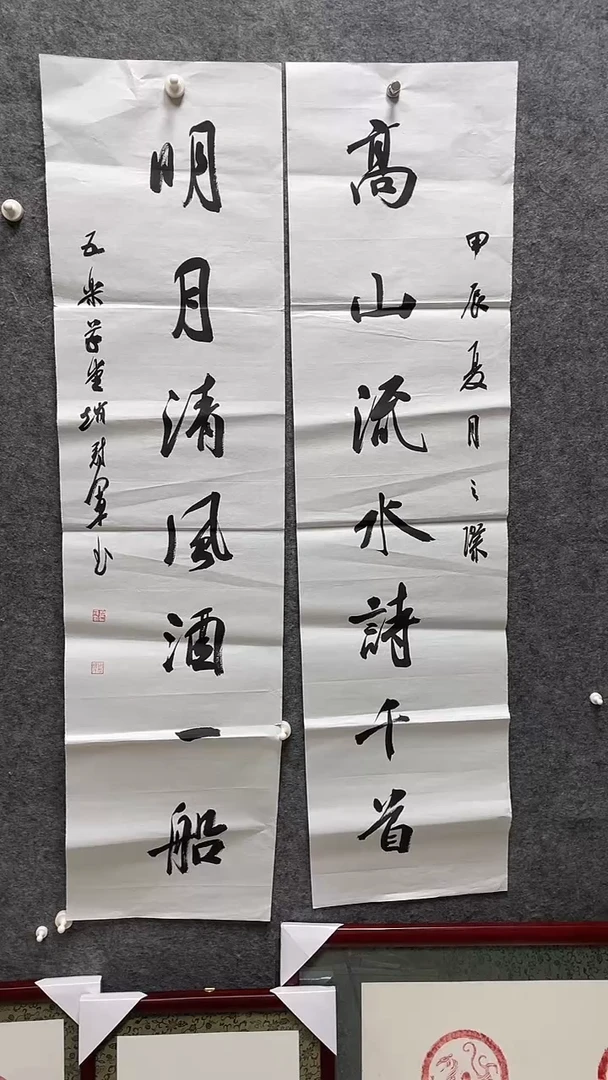 甲辰夏月之際
高山流水詩千首
明月清風酒一船
五樂草堂趙對軍书